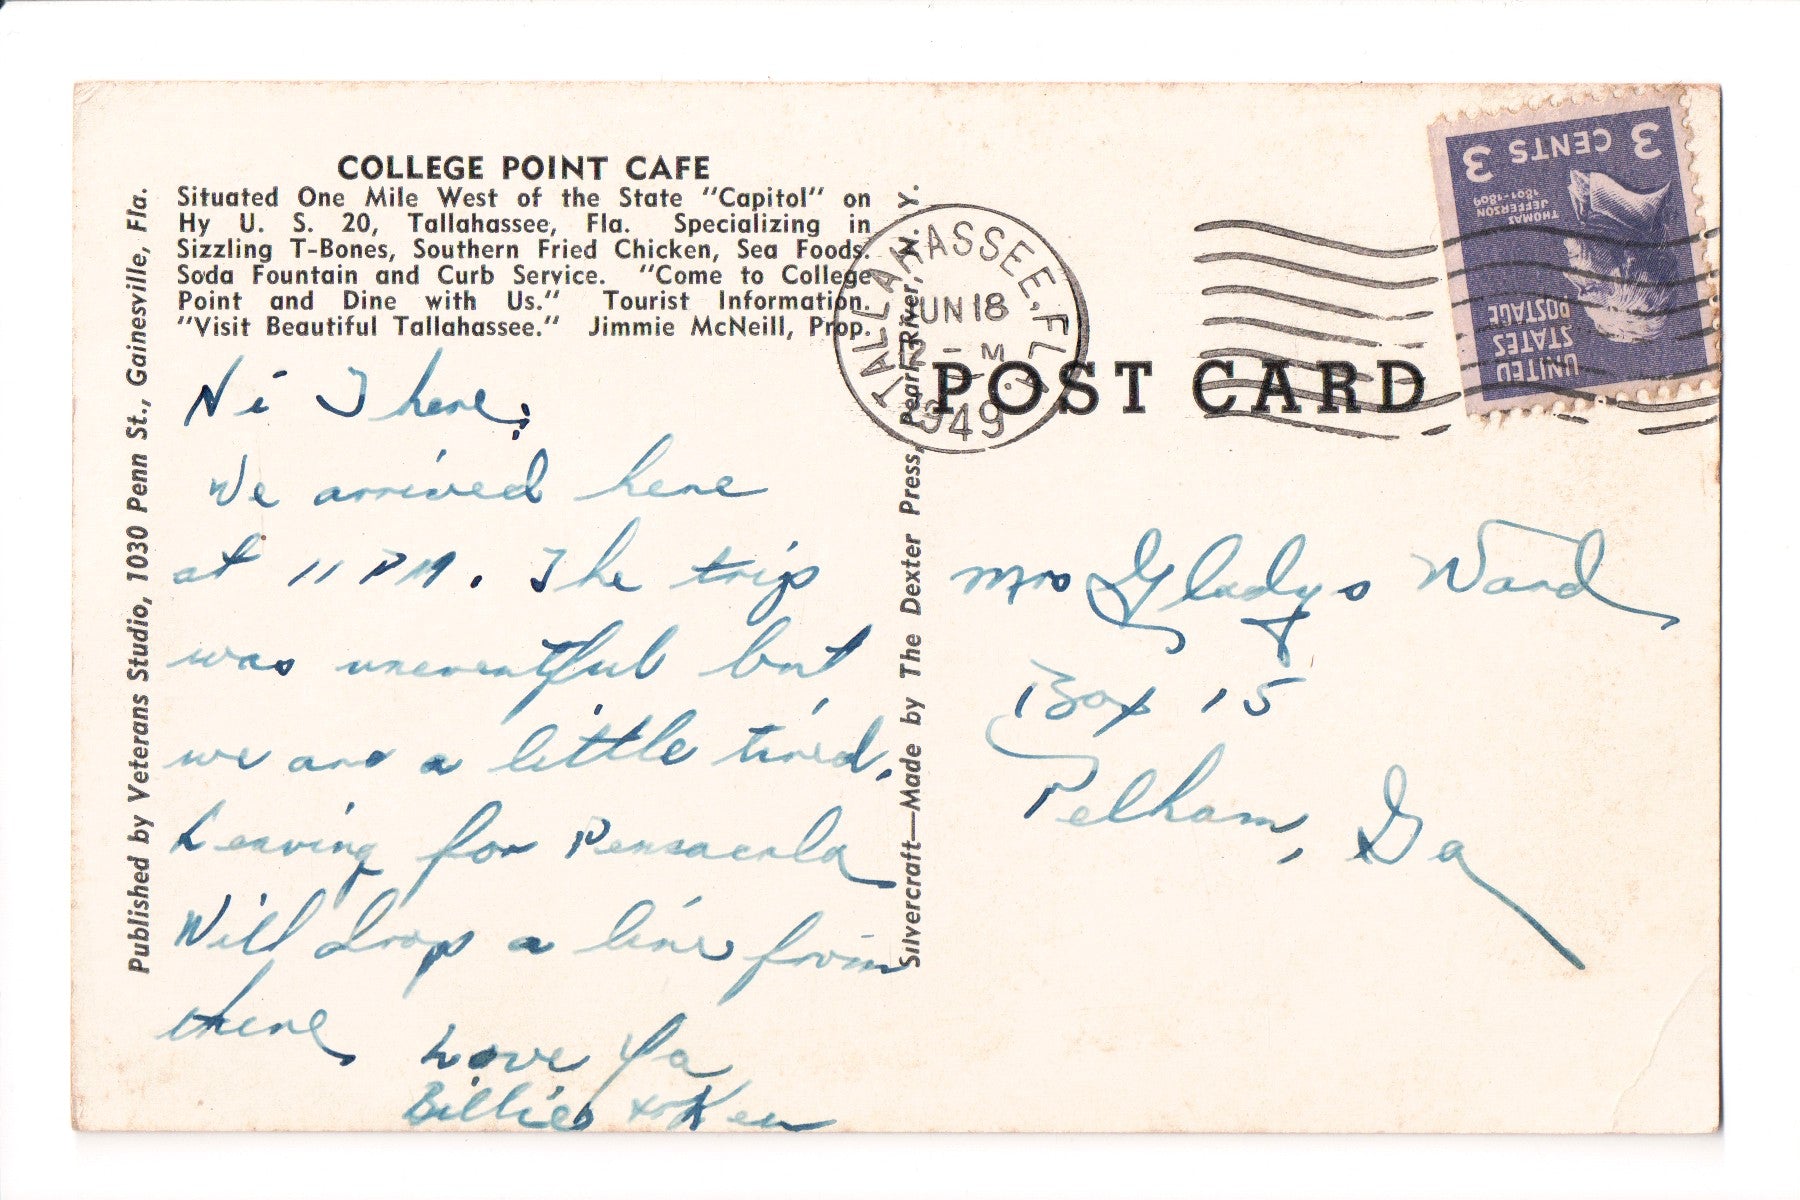 COLLEGE POINT CAFE
Situated One Mile West of the State "Capitol" on
Hy U. S. 20, Tallahassee, Fla. Specializing in
Sizzling T-Bones, Southern Fried Chicken, Sea Foods.
Soda Fountain and Curb Service. "Come to College
Point and Dine with Us." Tourist Information.
"Visit Beautiful Tallahassee." Jimmie McNeill, Prop.
Published by Veterans Studio, 1030 Penn St., Gainesville, Fla.
Hi There;
We arrived here
at 11 PM. The trip
was uneventful but
we are a little tired.
Leaving for Pensacola
Will drop a line from
there,
Love Ya
Billie & Ken
Silvercraft—Made by The Dexter Press, Pearl River, N. Y.
POST CARD
TALLAHASSEE, FLA.
JUN 18
M
1949
3 CENTS 3
THOMAS
JEFFERSON
1801-1809
UNITED
STATES
POSTAGE
Mrs Gladys Ward
Box 15
Pelham, Ga